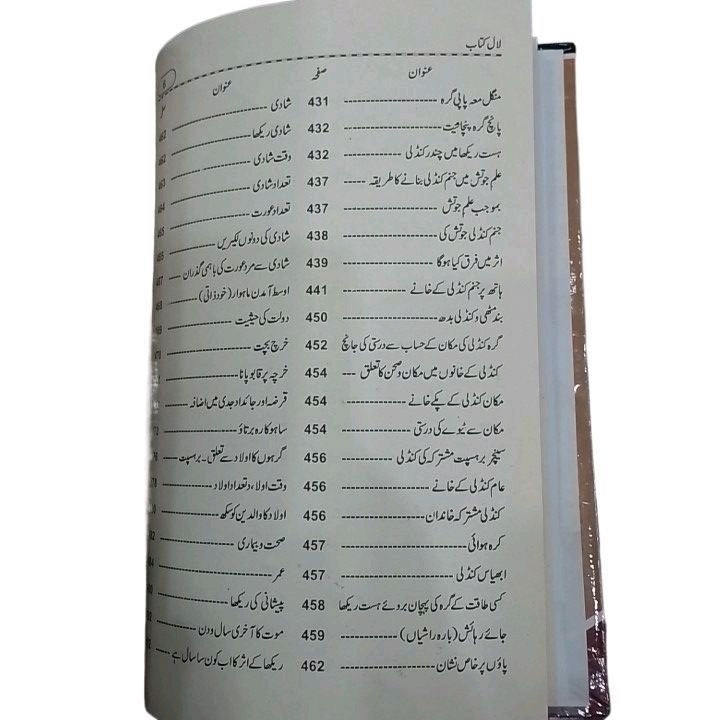 لال کتاب
6
عنوان صفحہ
منگل معہ پاپی گرہ 431
پانچ گرہ پنچائیت 432
ہست ریکھا میں چندر کنڈلی 432
علم جوتش میں جنم کنڈلی بنانے کا طریقہ 437
بموجب علم جوتش 437
جنم کنڈلی جوتش کی 438
اثر میں فرق کیا ہوگا 439
ہاتھ پر جنم کنڈلی کے خانے 441
بند مٹھی و کنڈلی بدھ 450
گرہ کنڈلی کی مکان کے حساب سے درستی کی جانچ 452
کنڈلی کے خانوں میں مکان و صحن کا تعلق 454
مکان کنڈلی کے پکے خانے 454
مکان سے ٹیوے کی درستی 454
سنیچر برہسپت مشترکہ کی کنڈلی 456
عام کنڈلی کے خانے 456
کنڈلی مشترکہ خاندان 456
کرہ ہوائی 457
ابھیاس کنڈلی 457
کسی طاقت کے گرہ کی پہچان بروئے ہست ریکھا 458
جائے رہائش (بارہ راشیاں) 459
پاؤں پر خاص نشان 462
عنوان
شادی
شادی ریکھا
وقت شادی
تعداد شادی
تعداد عورت
شادی کی دونوں لکیریں
شادی سے مرد عورت کی باہمی گذران
اوسط آمدن ماہوار (خود ذاتی)
دولت کی حیثیت
خرچ بچت
خرچہ پر قابو پانا
قرضہ اور جائداد جدی میں اضافہ
ساہوکارہ برتاؤ
گرہوں کا اولاد سے تعلق۔ برہسپت
وقت اولاد، تعداد اولاد
اولاد کا والدین کو سکھ
صحت و بیماری
عمر
پیشانی کی ریکھا
موت کا آخری سال و دن
ریکھا کے اثر کا اب کون سا سال ہے